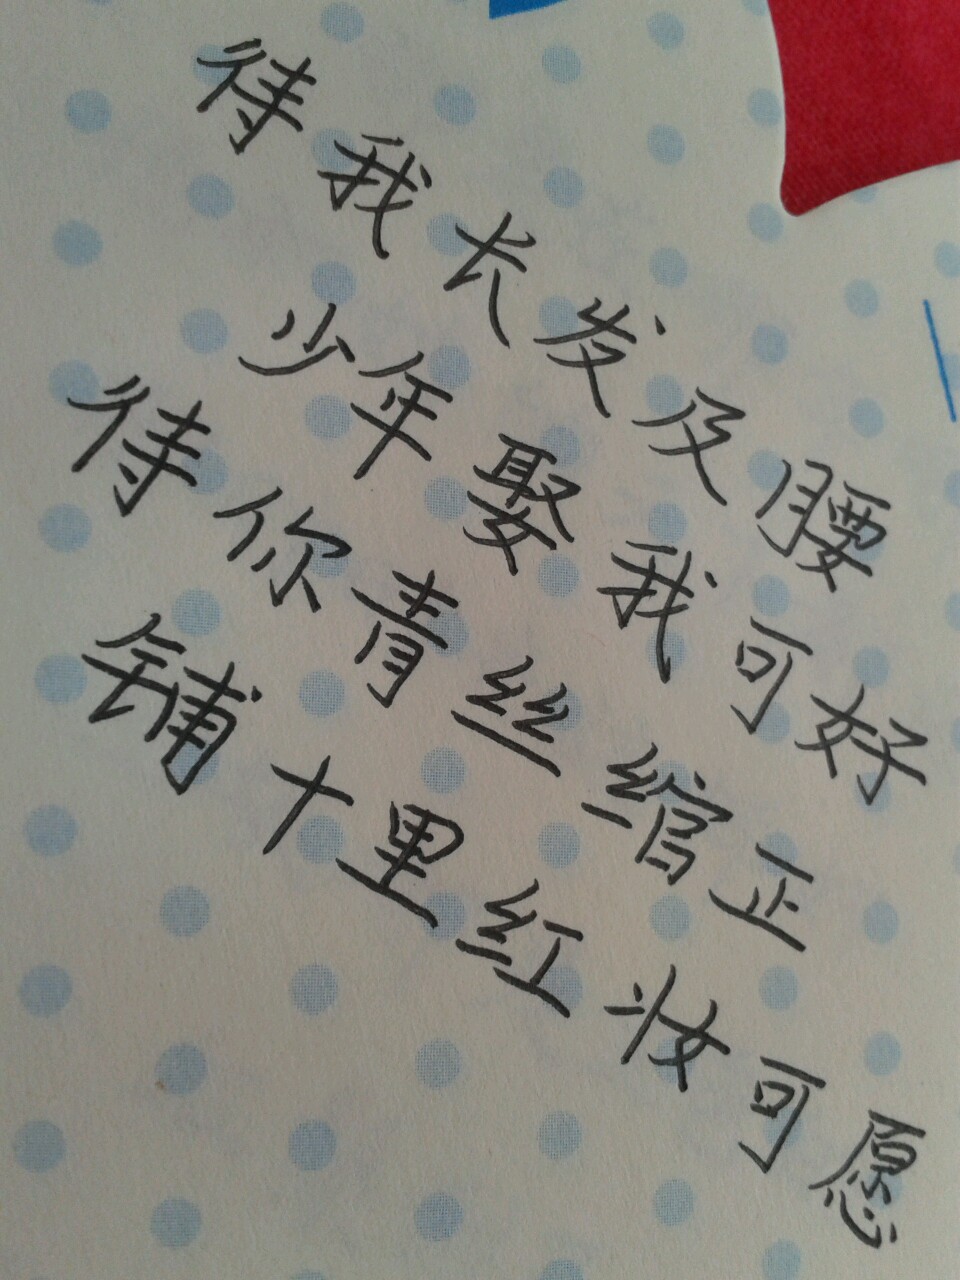 待我长发及腰
少年娶我可好
待你青丝绾正
铺十里红妆可愿